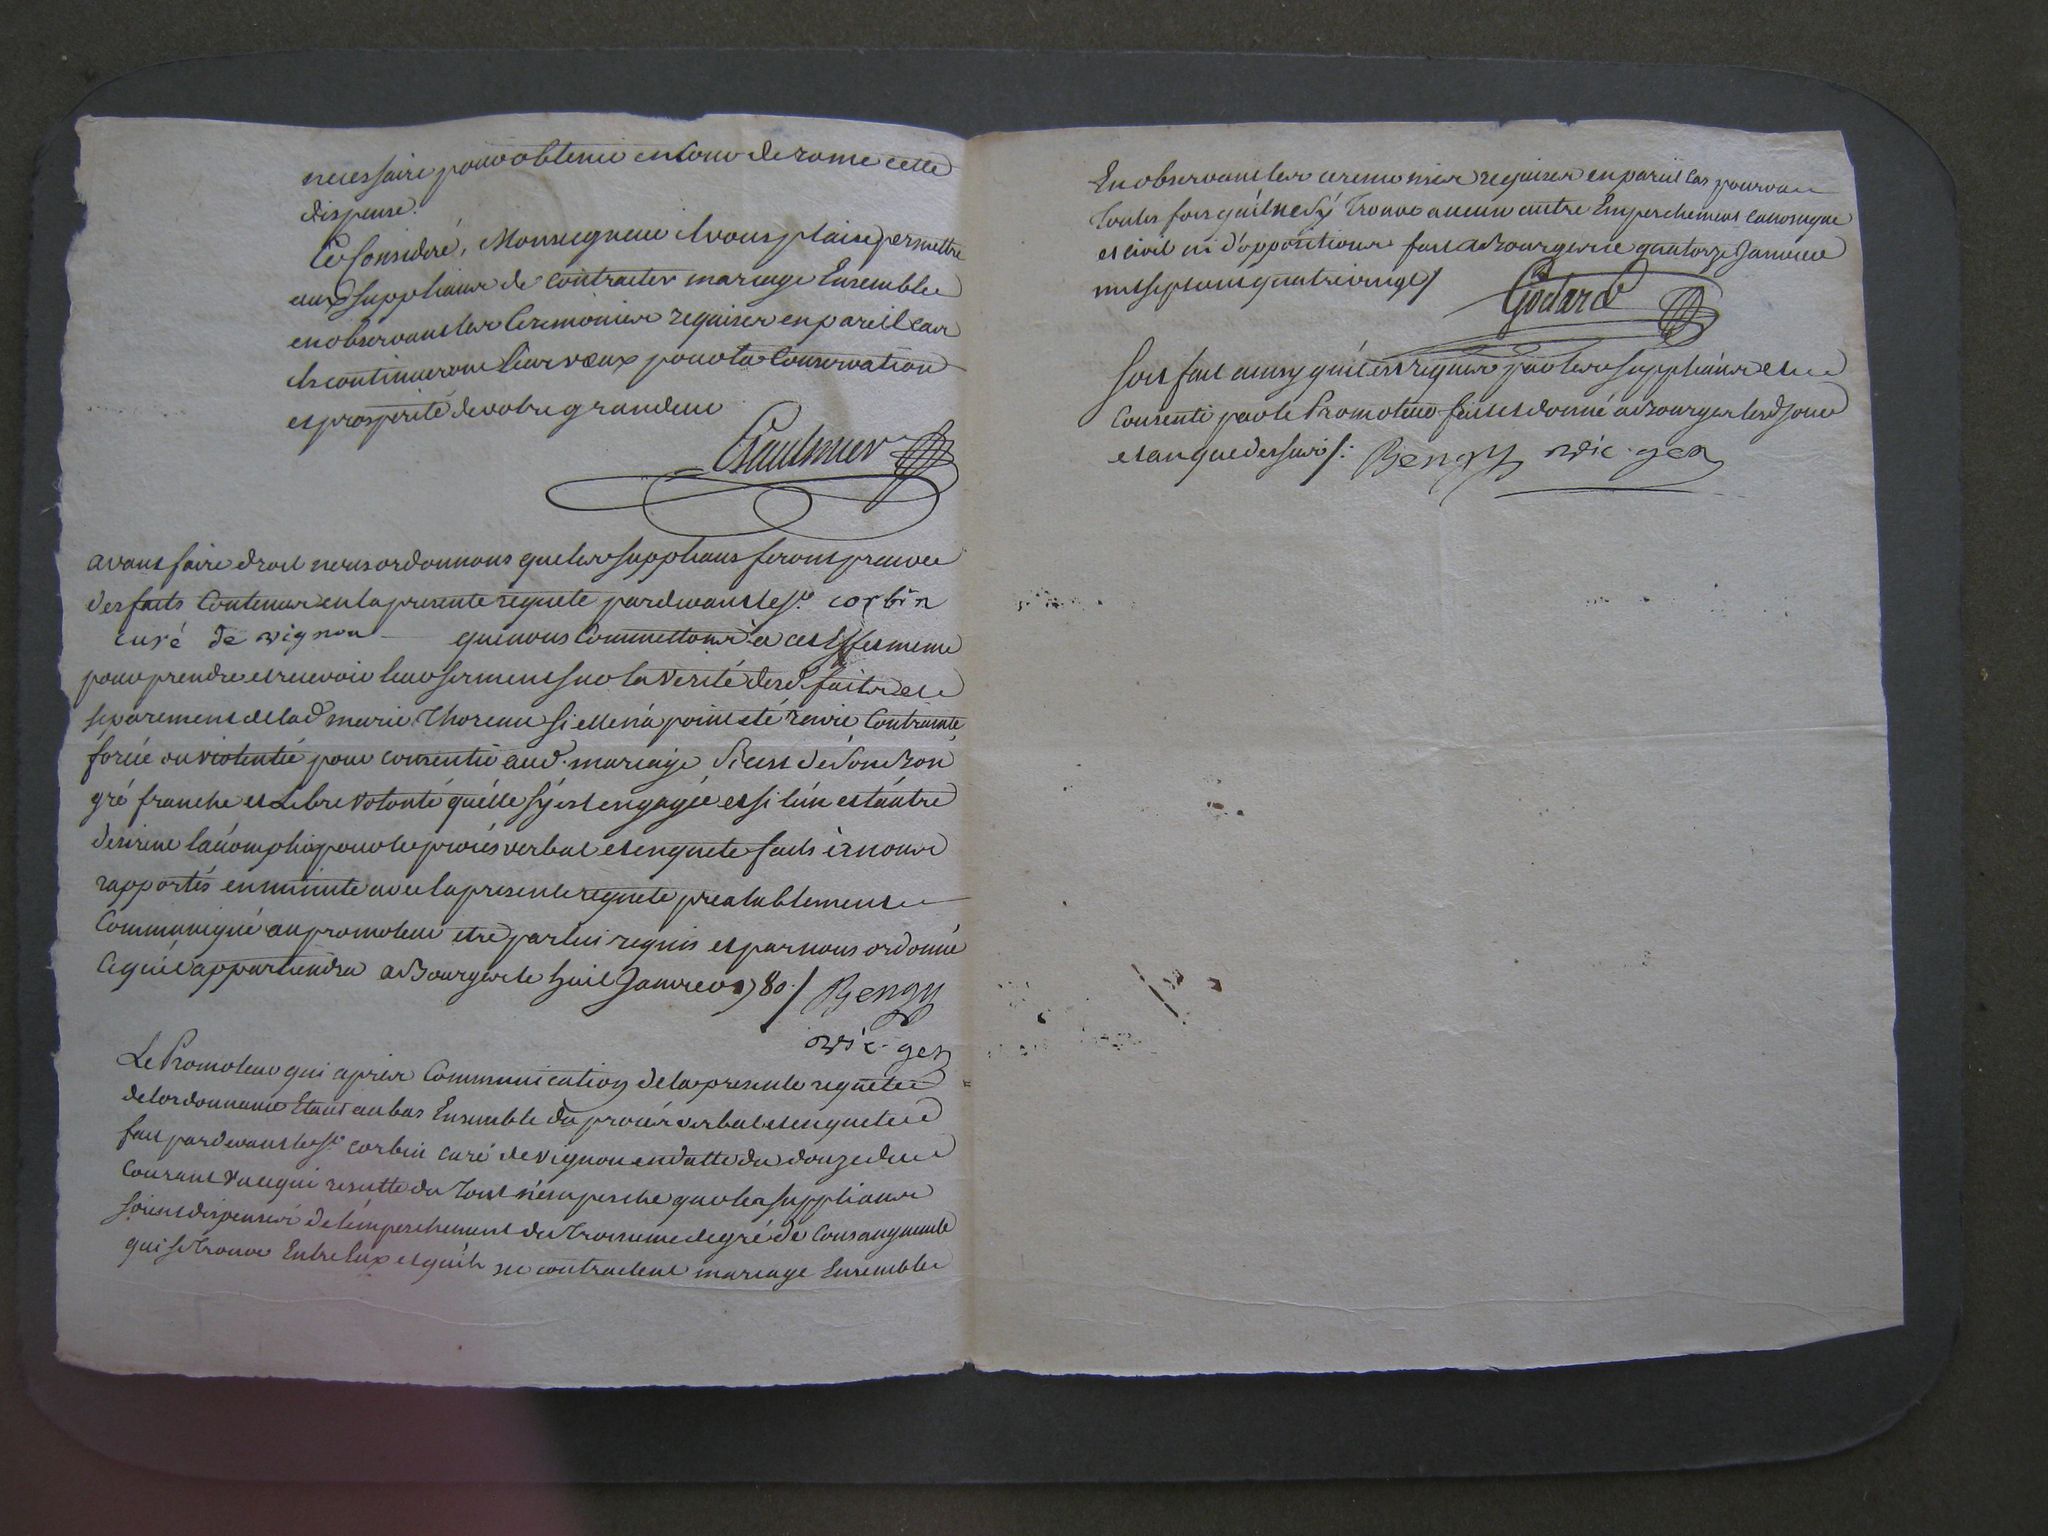 necessaire pour obtenir en Cour de rome cette
dispense.
Ce Consideré, Monseigneur il vous plaise permettre
aux suppliants de contracter mariage Ensemble
en observant les Ceremonies requises en pareil cas
ils continueront leurs vœux pour la Conservation
et prosperité de votre grandeur
avant faire droit nous ordonnons que les suppliants feront preuve
des faits Contenus en la presente requete pardevant le Sr. corbin
curé de vignou que nous Commettons a cet Effet meme
pour prendre et recevoir leur serment sur la verité desd. faits et
separement de lad. marie Thoreau si elle n'a point eté ravie Contrainte,
forcée ou violentée pour consentir aud. mariage si c'est de son Bon
gré franche et Libre Volonté qu'elle s'y est engagée et si l'un et l'autre
desirent l'accomplir pour les procés verbal et enquete faits à nous
rapportés en minute avec la presente requete prealablement
Communiqué au promoteur etre par lui requis et par nous ordonné
Ce qu'il appartiendra a Bourges le huit Janvier 1780 ./. Bengy
vic. gen
Le Promoteur qui a pris Communication de la presente requete
de l'ordonnance Etant au bas Ensemble du procés verbal et enquete
fait pardevant le Sr. corbin curé de vignou en datte du douze du
Courant Vu ce qui resulte du Tout n'empesche que les suppliants
soient dispensés de l'empeschement du Troisieme degré de Consanguinité
qui se Trouve Entre Eux et qu'ils ne contractent mariage Ensemble
En observant les ceremonies requises en pareil Cas pourvu
Toutes fois qu'il ne s'y Trouve aucun autre Empeschement canonique
et civil ni d'oppositions fait a Bourges ce quatorze Janvier
mil sept cent quatre vingt ./. Godard
soit fait ainsy qu'il est requis par les suppliants et
Consenti par le Promoteur fait et donné a Bourges lesd. jour
et an que dessus ./. Bengy vic. gen